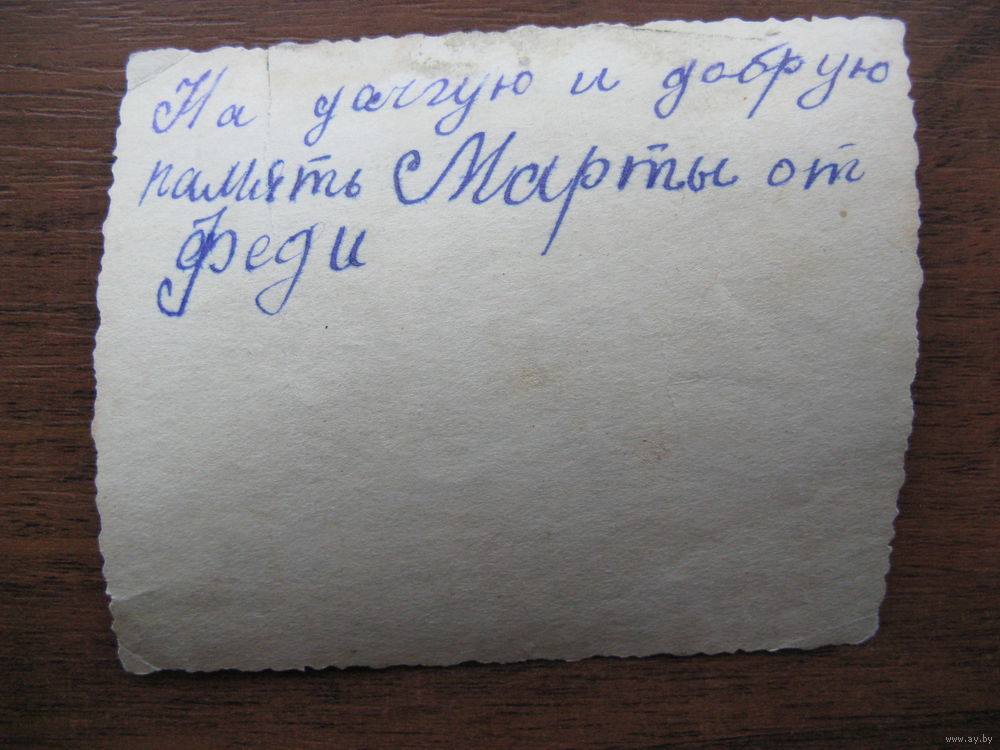 На далгую и добрую
память Марты от
Феди
www.ay.by